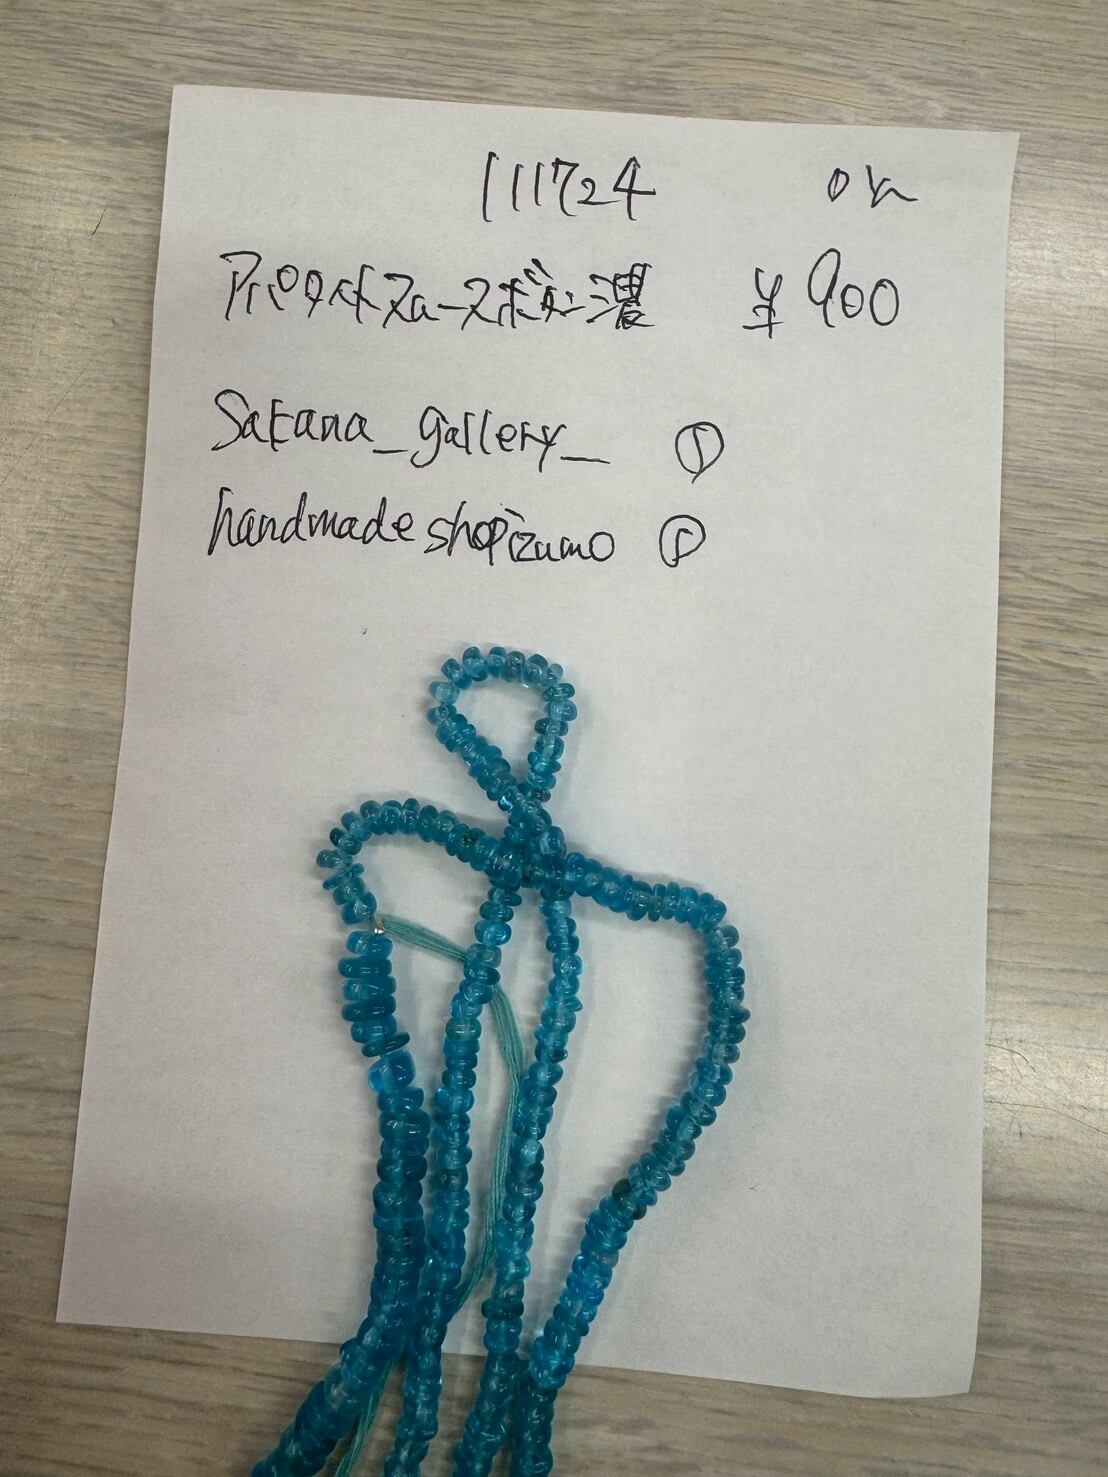 111724 ok
アパタイトスムースボタン濃 ¥900
Sakana_gallery_ ①
handmade shopizumo ①